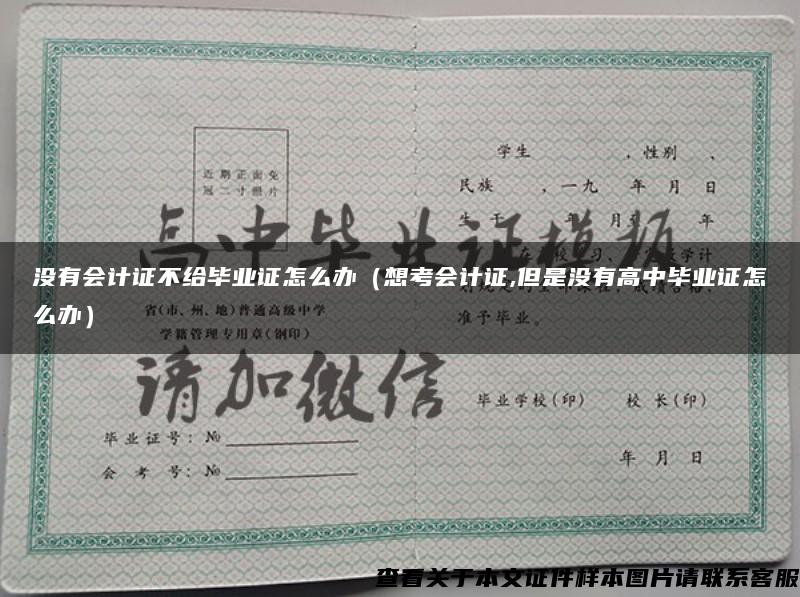 近期正面免
冠二寸照片
学生 ，性别 、
民族 ，一九 年 月 日
高中毕业证模板
没有会计证不给毕业证怎么办（想考会计证,但是没有高中毕业证怎
么办）
省(市、州、地)普通高级中学
学籍管理专用章(钢印)
准予毕业。
请加微信
毕业学校(印) 校长(印)
毕业证号：№
会考号：№
年 月 日
查看关于本文证件样本图片请联系客服